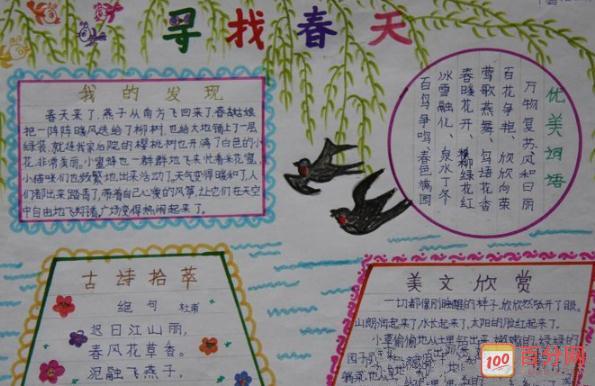 寻找春天
我的发现
春天来了,燕子从南方飞回来了,春姑娘
把一阵阵暖风送给了柳树,也给大地铺上了一层
绿装,就连我家后院的樱桃树也开满了白色的小
花,非常美丽。小蜜蜂也一群群地飞来忙着采花蜜,
小猫咪们也频繁地出来活动了,天气变得暖和了,人
们都出来踏青了,带着自己心爱的风筝,让它们在天空
中自由地飞翔着,广场变得热闹起来了。
优美词语
万物复苏、风和日丽
百花争艳、欣欣向荣
莺歌燕舞、鸟语花香
春暖花开、柳绿花红
冰雪融化、泉水丁冬
百鸟争鸣、春色满园
古诗拾萃
绝句 杜甫
迟日江山丽,
春风花草香。
泥融飞燕子,
美文欣赏
一切都像刚睡醒的样子,欣欣然张开了眼。
山朗润起来了,水长起来了,太阳的脸红起来了。
小草偷偷地从土里钻出来,嫩嫩的,绿绿的
100
百分网